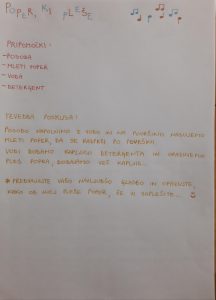 POPER, KI PLEŠE
PRIPOMOČKI:
- POSODA
- MLETI POPER
- VODA
- DETERGENT
IZVEDBA POSKUSA:
POSODO NAPOLNIMO Z VODO IN NA POVRŠINO NASUJEMO
MLETI POPER, DA SE RAZPRŠI PO POVRŠINI
VODI DODAMO KAPLJICO DETERGENTA IN OPAZUJEMO
PLES POPRA, DODAJAMO VEČ KAPLJIC...
* PREDVAJAJTE VAŠO NAJLJUBŠO GLASBO IN OPAZUJTE,
KAKO OB NJEJ PLEŠE POPER, ŠE VI ZAPLEŠITE...